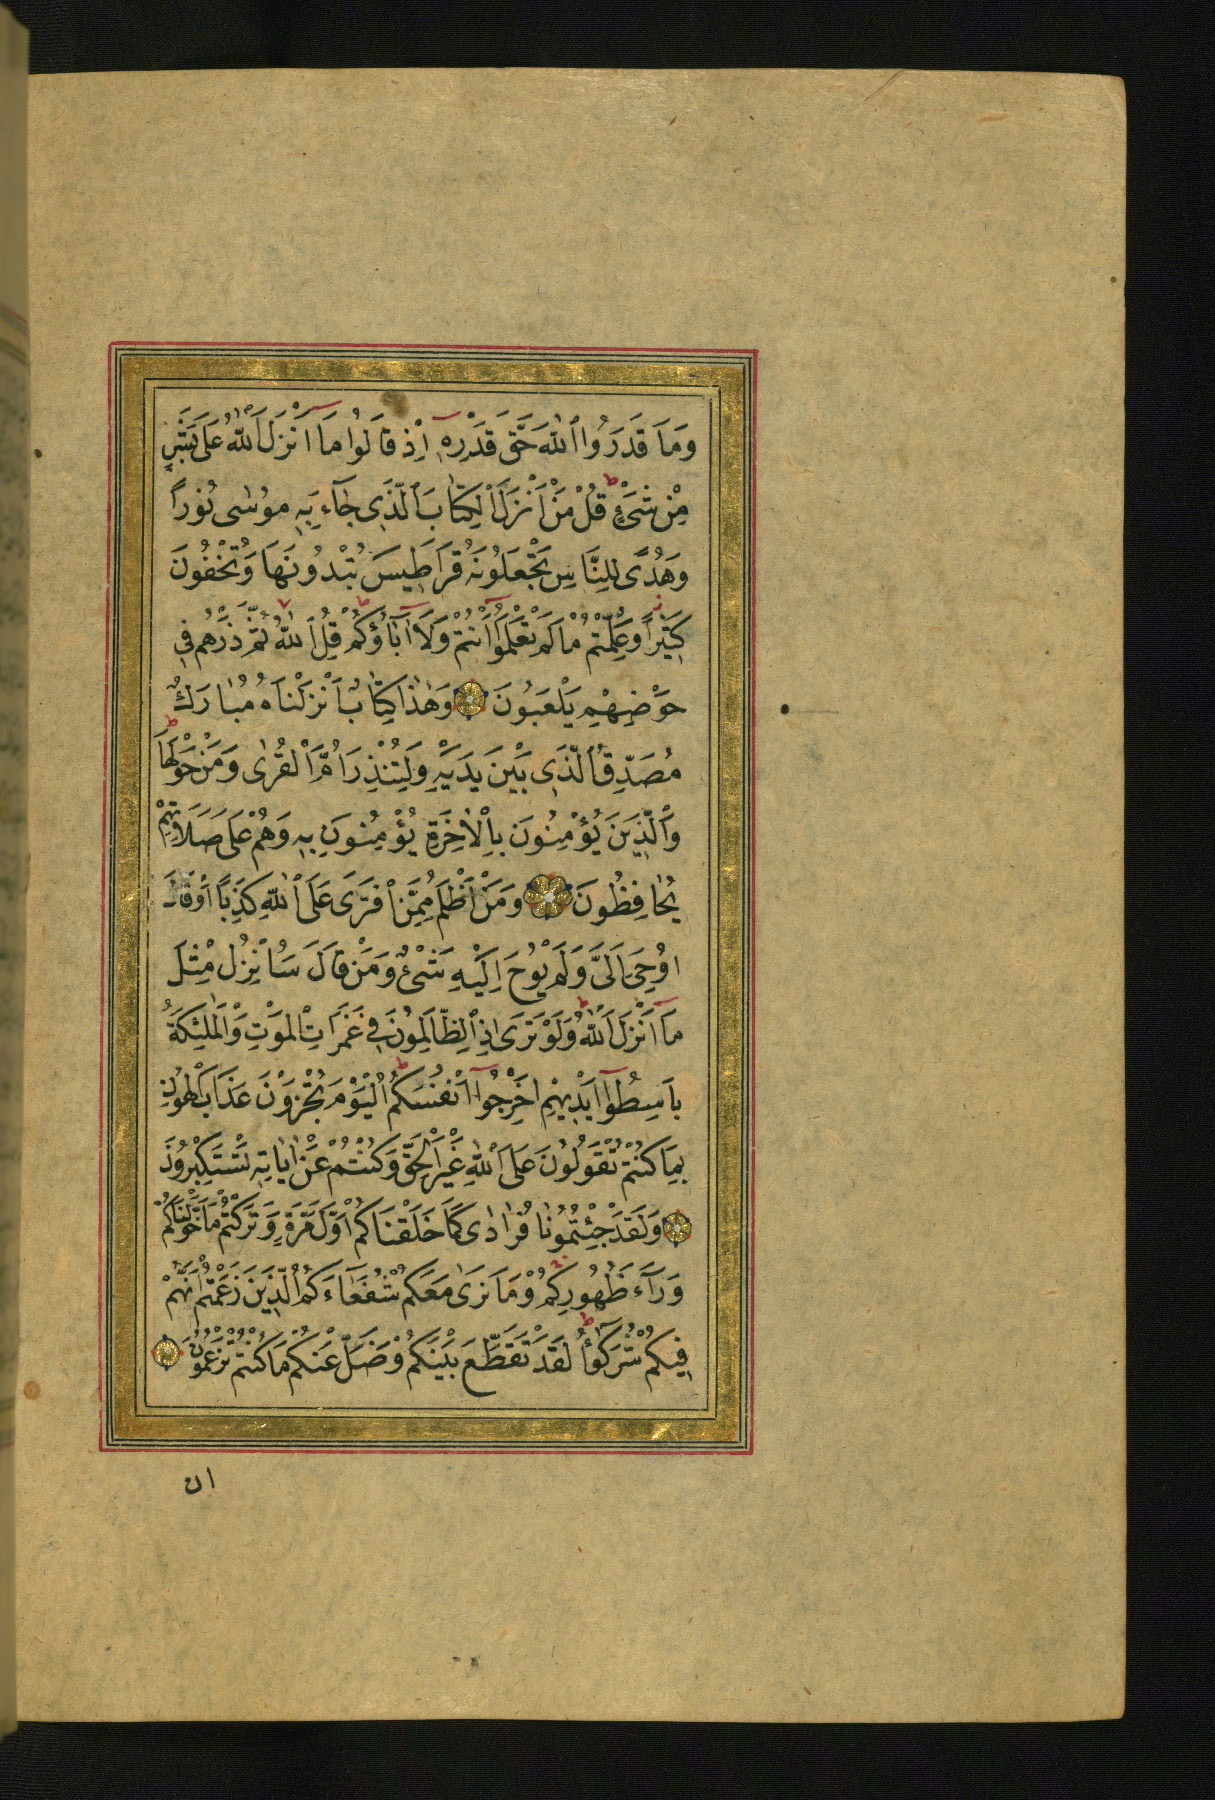 وَمَا قَدَرُوا ٱللّٰهَ حَقَّ قَدْرِهٖٓ اِذْ قَالُوا مَآ اَنْزَلَ ٱللّٰهُ عَلٰى بَشَرٍ
مِنْ شَيْءٍؕ قُلْ مَنْ اَنْزَلَ ٱلْكِتَابَ ٱلَّذِى جَآءَ بِهٖ مُوسٰى نُورًا
وَهُدًى لِلنَّاسِ تَجْعَلُونَهُ قَرَاطِيسَ تُبْدُونَهَا وَتُخْفُونَ
كَثِيرًا وَعُلِّمْتُمْ مَا لَمْ تَعْلَمُوٓا اَنْتُمْ وَلَآ اٰبَآؤُكُمْؕ قُلِ ٱللّٰهُ ثُمَّ ذَرْهُمْ فِى
خَوْضِهِمْ يَلْعَبُونَ وَهٰذَا كِتَابٌ اَنْزَلْنَاهُ مُبَارَكٌ
مُصَدِّقُ ٱلَّذِى بَيْنَ يَدَيْهِ وَلِتُنْذِرَ اُمَّ ٱلْقُرٰى وَمَنْ حَوْلَهَاؕ
وَٱلَّذِينَ يُؤْمِنُونَ بِٱلْاٰخِرَةِ يُؤْمِنُونَ بِهٖ وَهُمْ عَلٰى صَلَاتِهِمْ
يُحَافِظُونَ وَمَنْ اَظْلَمُ مِمَّنِ ٱفْتَرٰى عَلَى ٱللّٰهِ كَذِبًا اَوْ قَالَ
اُوحِىَ اِلَىَّ وَلَمْ يُوحَ اِلَيْهِ شَىْءٌ وَمَنْ قَالَ سَاُنْزِلُ مِثْلَ
مَآ اَنْزَلَ ٱللّٰهُؕ وَلَوْ تَرٰى اِذِ ٱلظَّالِمُونَ فِى غَمَرَاتِ ٱلْمَوْتِ وَٱلْمَلٰئِكَةُ
بَاسِطُوٓا اَيْدِيهِمْ اَخْرِجُوٓا اَنْفُسَكُمُؕ ٱلْيَوْمَ تُجْزَوْنَ عَذَابَ ٱلْهُونِ
بِمَا كُنْتُمْ تَقُولُونَ عَلَى ٱللّٰهِ غَيْرَ ٱلْحَقِّ وَكُنْتُمْ عَنْ اٰيَاتِهٖ تَسْتَكْبِرُونَ
وَلَقَدْ جِئْتُمُونَا فُرَادٰى كَمَا خَلَقْنَاكُمْ اَوَّلَ مَرَّةٍ وَتَرَكْتُمْ مَا خَوَّلْنَاكُمْ
وَرَآءَ ظُهُورِكُمْ وَمَا نَرٰى مَعَكُمْ شُفَعَآءَكُمُ ٱلَّذِينَ زَعَمْتُمْ اَنَّهُمْ
فِيكُمْ شُرَكٰٓؤُاؕ لَقَدْ تَقَطَّعَ بَيْنَكُمْ وَضَلَّ عَنْكُمْ مَا كُنْتُمْ تَزْعُمُونَ
ان